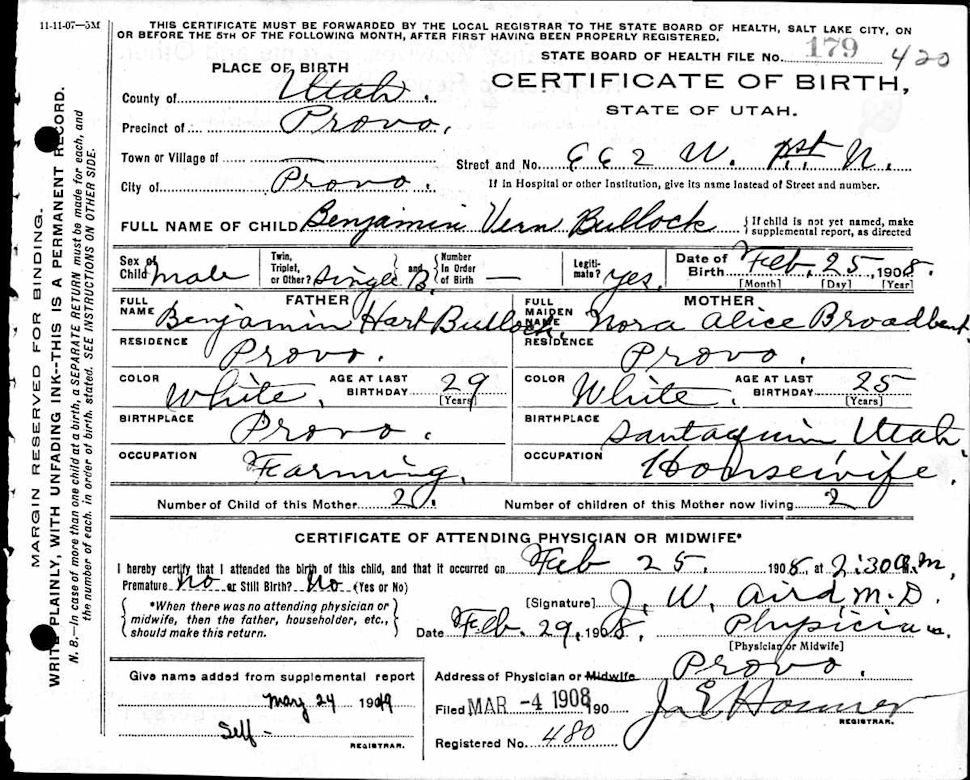 11-11-07—5M
THIS CERTIFICATE MUST BE FORWARDED BY THE LOCAL REGISTRAR TO THE STATE BOARD OF HEALTH, SALT LAKE CITY, ON
OR BEFORE THE 5TH OF THE FOLLOWING MONTH, AFTER FIRST HAVING BEEN PROPERLY REGISTERED.
STATE BOARD OF HEALTH FILE No. 179 420
PLACE OF BIRTH
CERTIFICATE OF BIRTH,
STATE OF UTAH.
County of Utah.
Precinct of Provo,
Town or Village of
Street and No. 662 W. 1st N.
City of Provo.
If in Hospital or other Institution, give its name instead of Street and number.
FULL NAME OF CHILD Benjamin Vern Bullock { If child is not yet named, make supplemental report, as directed
Sex of Child Male Twin, Triplet, or Other? Single } and { Number In Order of Birth — Legiti-mate? Yes. Date of Birth Feb. 25, 1908. [Month] [Day] [Year]
FATHER
MOTHER
FULL NAME Benjamin Hart Bullock.
FULL MAIDEN NAME Nora Alice Broadbent
RESIDENCE Provo.
RESIDENCE Provo.
COLOR White. AGE AT LAST BIRTHDAY 29 [Years]
COLOR White. AGE AT LAST BIRTHDAY 25 [Years]
BIRTHPLACE Provo.
BIRTHPLACE Santaquin Utah.
OCCUPATION Farming.
OCCUPATION Housewife.
Number of Child of this Mother 2. Number of children of this Mother now living 2
CERTIFICATE OF ATTENDING PHYSICIAN OR MIDWIFE*
I hereby certify that I attended the birth of this child, and that it occurred on Feb 25. 1908, at 2:30 a.m.
Premature No or Still Birth? No (Yes or No)
*When there was no attending physician or midwife, then the father, householder, etc., should make this return.
[Signature] J. W. Aird M.D.
Date Feb. 29, 1908. Physician.
[Physician or Midwife]
Give name added from supplemental report
May 24 1949
Self-
REGISTRAR.
Address of Physician or Midwife Provo.
Filed MAR -4 1908 190
REGISTRAR.
Registered No. 480
MARGIN RESERVED FOR BINDING.
WRITE PLAINLY, WITH UNFADING INK--THIS IS A PERMANENT RECORD.
N. B.—In case of more than one child at a birth, a SEPARATE RETURN must be made for each, and
the number of each, in order of birth, stated. SEE INSTRUCTIONS ON OTHER SIDE.